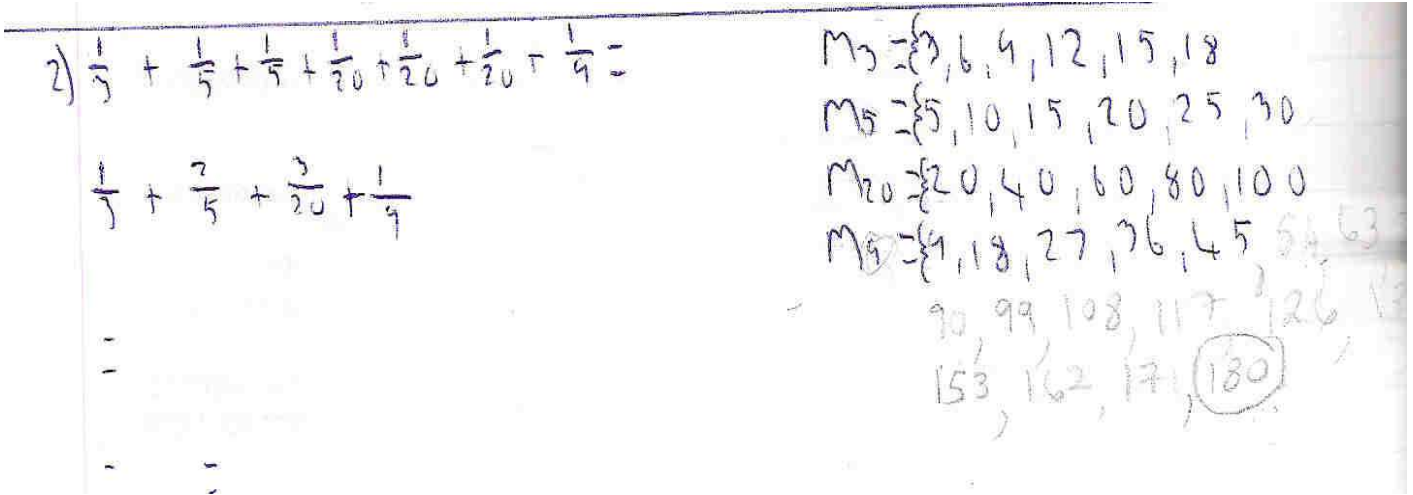 2) 1/3 + 1/5 + 1/5 + 1/20 + 1/20 + 1/20 + 1/9 =
1/3 + 2/5 + 3/20 + 1/9
=
- =
M3 = {3, 6, 9, 12, 15, 18
M5 = {5, 10, 15, 20, 25, 30
M20 = {20, 40, 60, 80, 100
M9 = {9, 18, 27, 36, 45, 54, 63
90, 99, 108, 117, 126,
153, 162, 171, 180